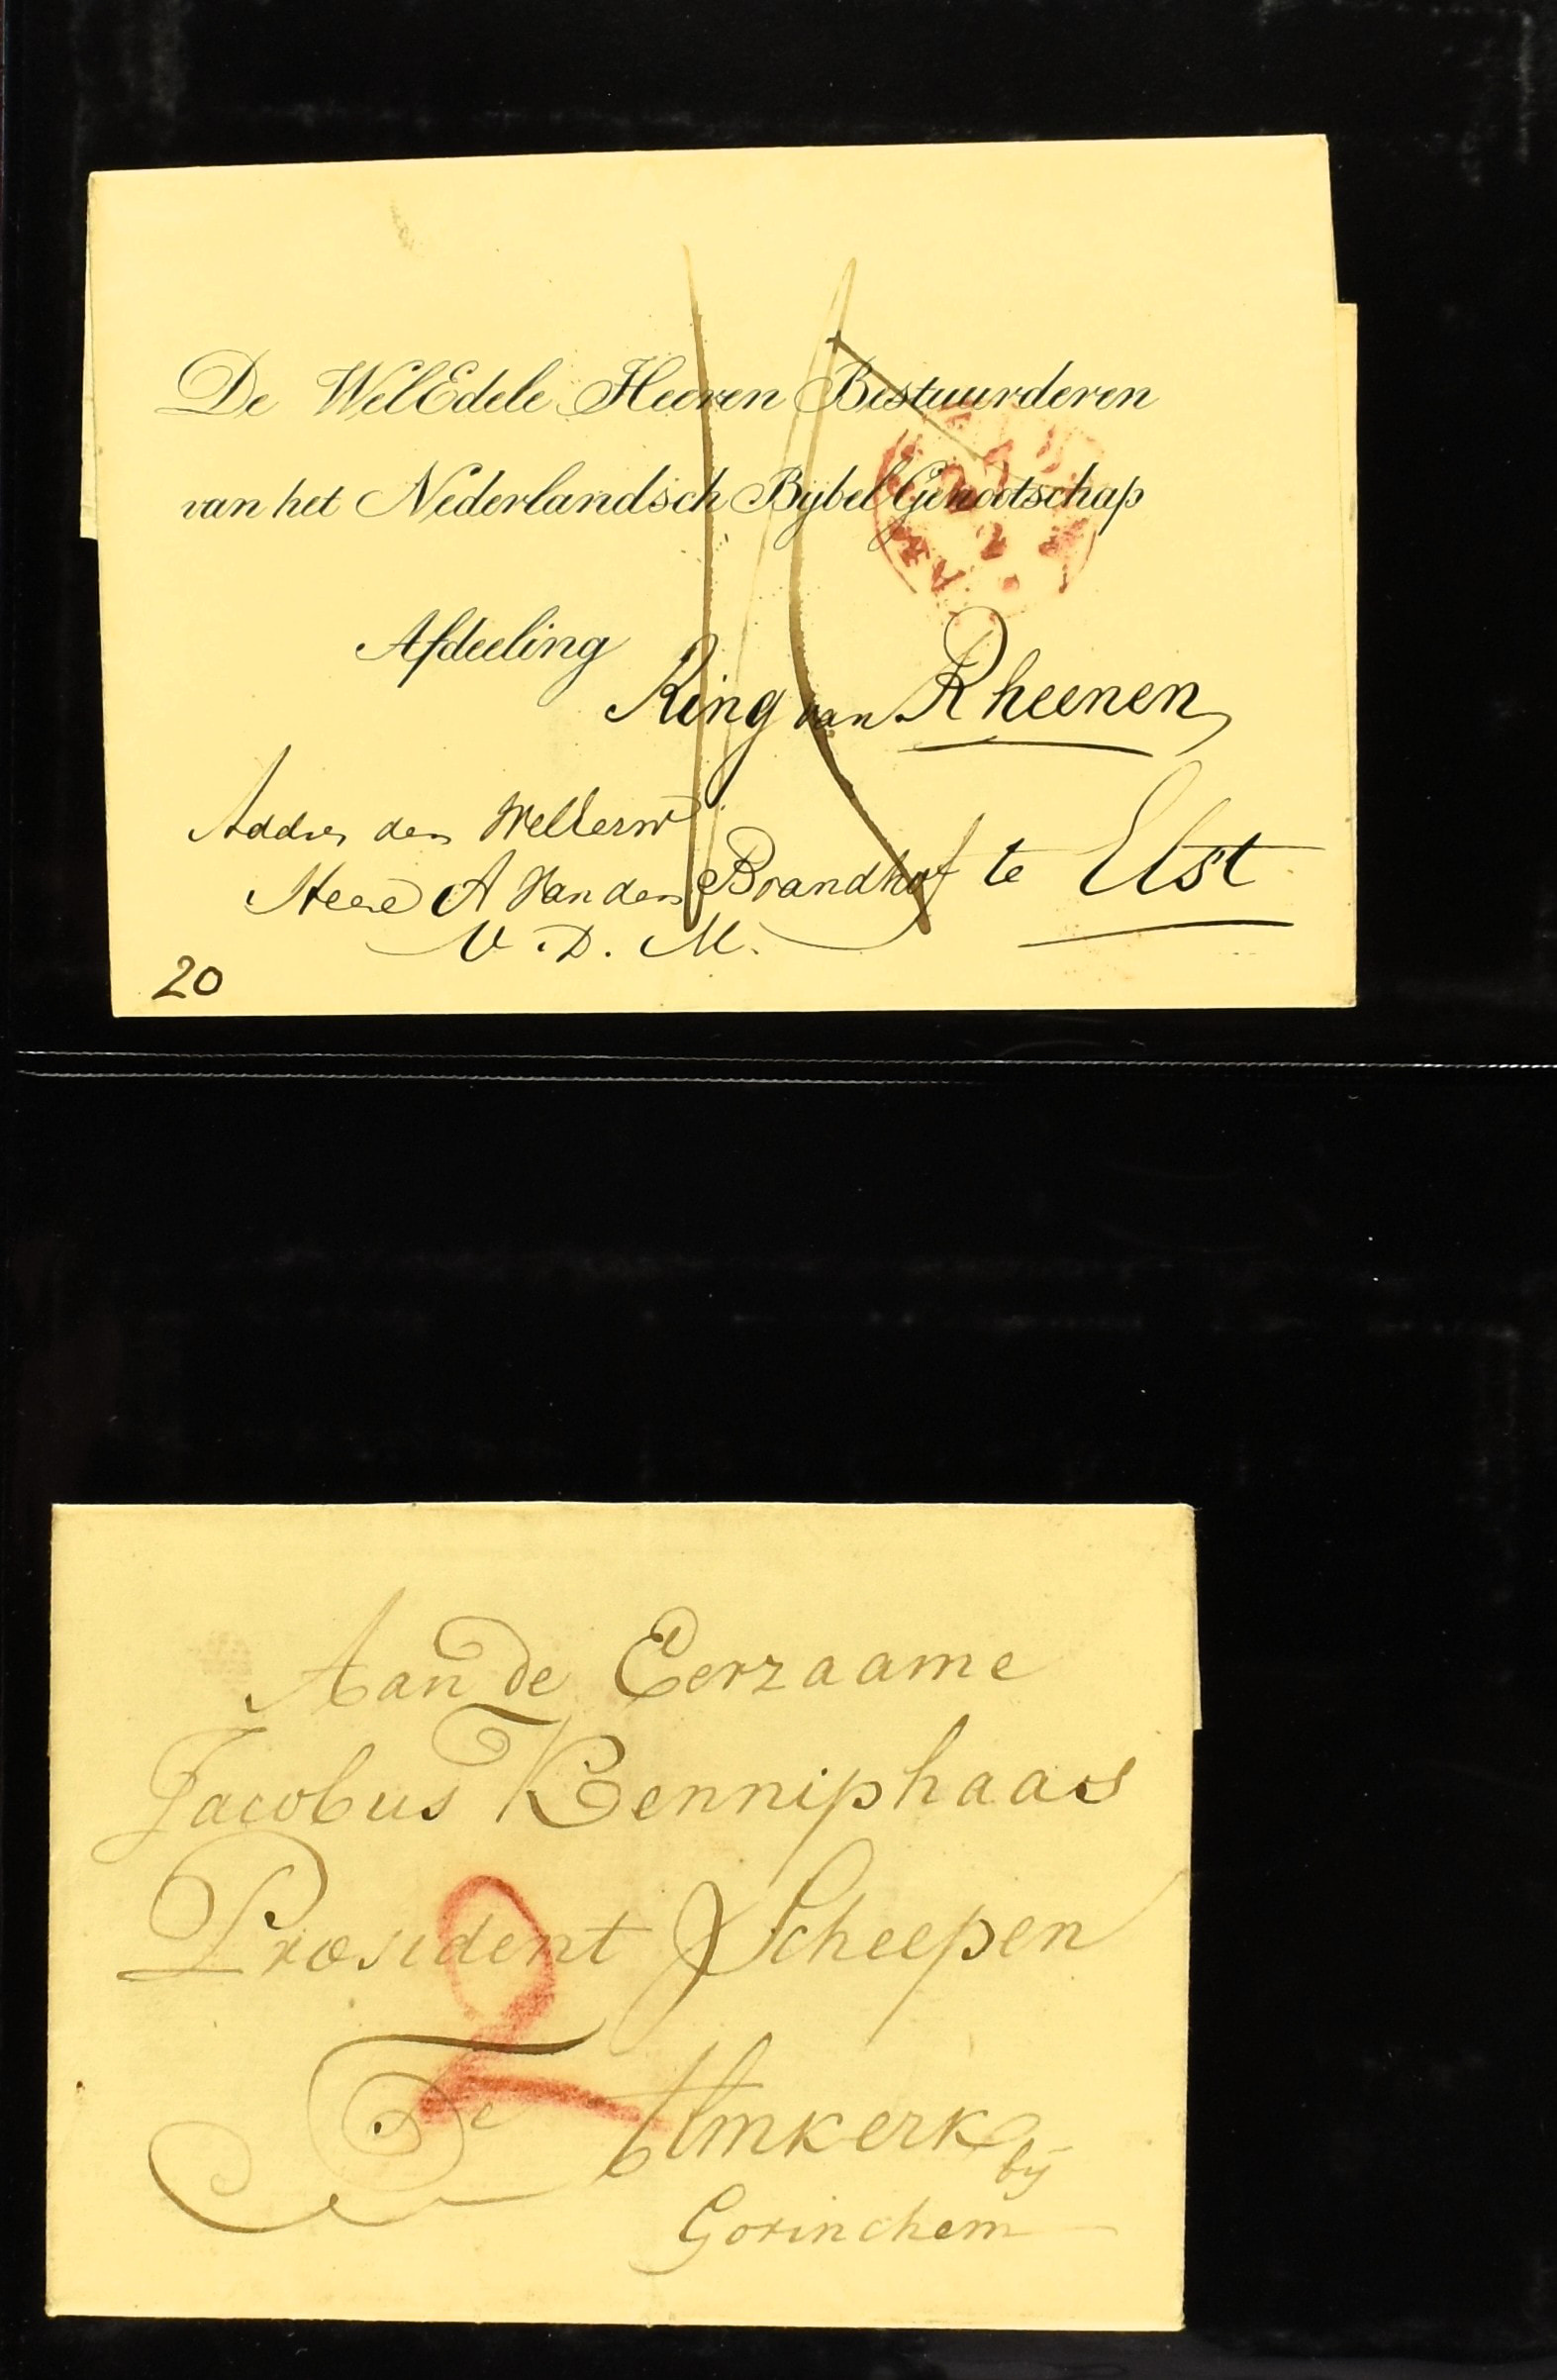 De WelEdele Heeren Bestuurderen
van het Nederlandsch Bijbel Genootschap
Afdeeling
Ring van Rheenen
Addres den WelEerw
Heere A Van den Brandhof te Elst
V. D. M.
20
Aan de Eerzaame
Jacobus Kenniphaas
Præsident Scheepen
Te Almkerk bij
Gorinchem